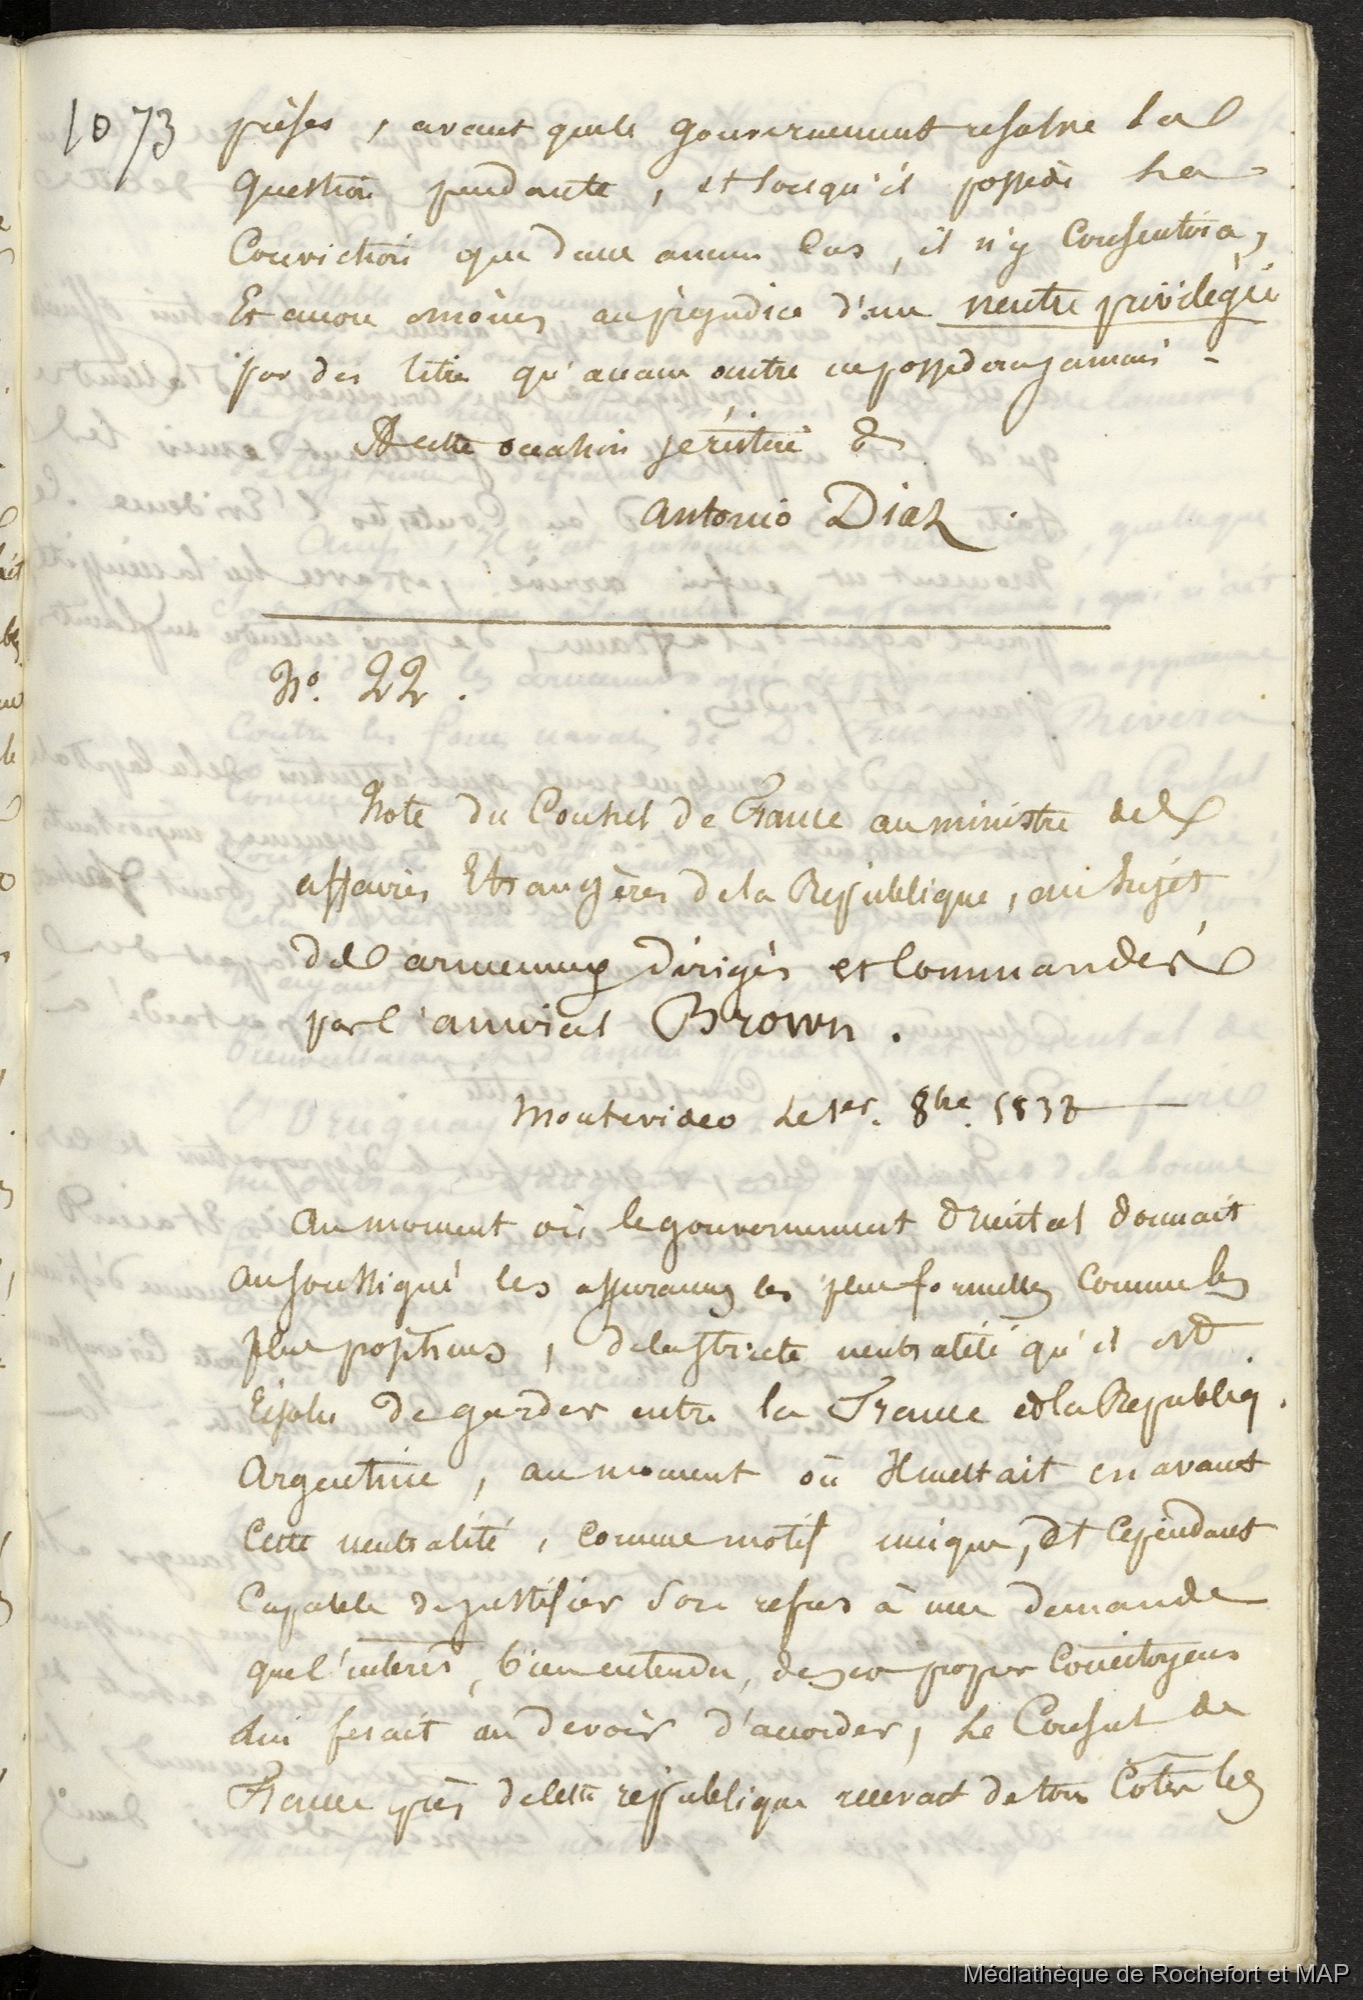 1073
prises, avant que le gouvernement resolve la
question pendante, et lorsqu'il possède la
Conviction que dans aucun cas, il n'y consentira,
Et encore moins au préjudice d'un neutre privilégié
par des titres qu'aucun autre ne possedera jamais -
A cette occasion je réitère &
Antonio Diaz.
No. 22.
Note du Consul de France au ministre des
affaires Etrangères de la République, au sujet
des armemens dirigés et Commandés
par l'amiral Brown.
Montevideo Le 1er. 8bre. 1838
Au moment où le gouvernement Oriental donnait
au soussigné les assurances les plus formelles comme les
plus positives, de la stricte neutralité qu'il est
résolu de garder entre la France et la Republiq.
Argentine, au moment où Il mettait en avant
Cette neutralité, comme motif unique, et cependant
Capable de justifier son refus à une demande
que l'intérêt, bien entendu, de ses propres Concitoyens
lui fesait un devoir d'accorder, Le Consul de
France près de cette république recevait de tous Cotés les
Médiathèque de Rochefort et MAP